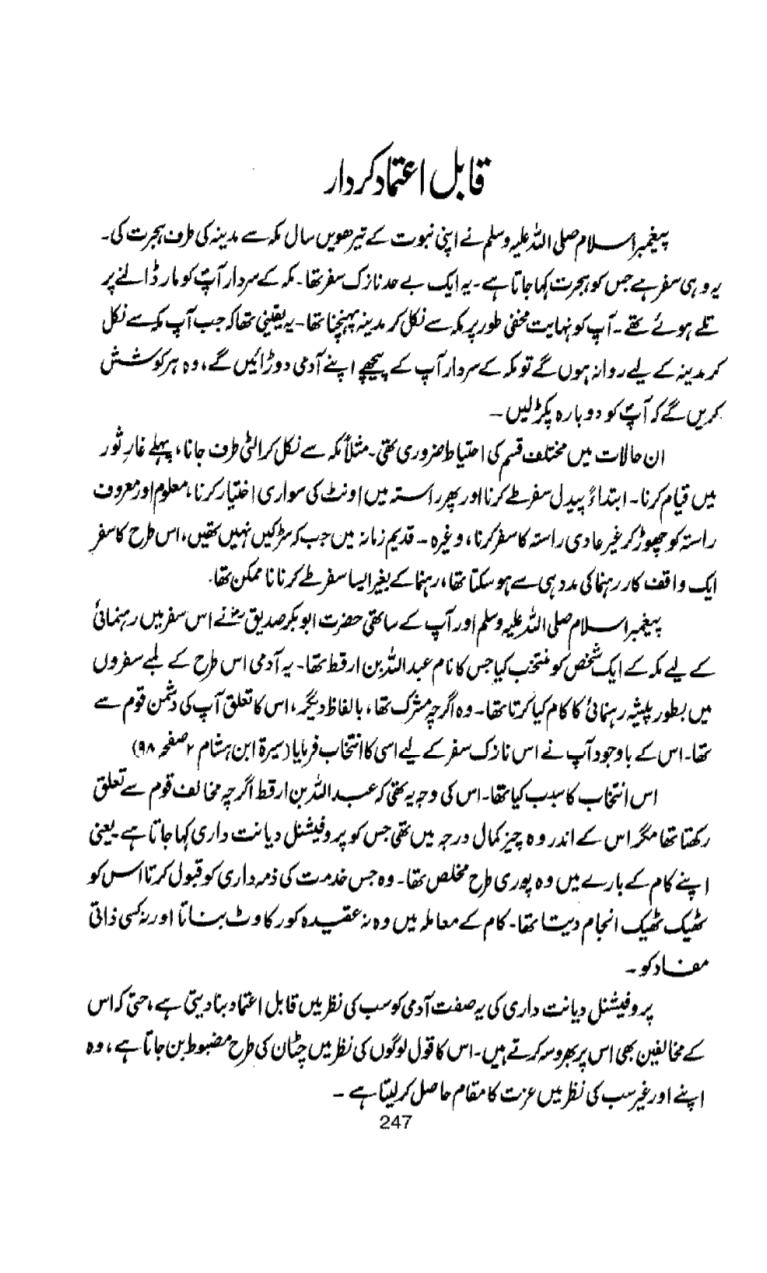 قابل اعتماد کردار
پیغمبر اسلام صلی اللہ علیہ وسلم نے اپنی نبوت کے تیرھویں سال مکہ سے مدینہ کی طرف ہجرت کی۔
یہ وہی سفر ہے جس کو ہجرت کہا جاتا ہے۔ یہ ایک بے حد نازک سفر تھا۔ مکہ کے سردار آپؐ کو مار ڈالنے پر
تلے ہوئے تھے۔ آپ کو نہایت مخفی طور پر مکہ سے نکل کر مدینہ پہنچنا تھا۔ یہ یقینی تھا کہ جب آپ مکہ سے نکل
کر مدینہ کے لیے روانہ ہوں گے تو مکہ کے سردار آپ کے پیچھے اپنے آدمی دوڑائیں گے، وہ ہر کوشش
کریں گے کہ آپؐ کو دوبارہ پکڑ لیں۔
ان حالات میں مختلف قسم کی احتیاط ضروری تھی۔ مثلاً مکہ سے نکل کر الٹی طرف جانا، پہلے غار ثور
میں قیام کرنا۔ ابتداءً پیدل سفر طے کرنا اور پھر راستہ میں اونٹ کی سواری اختیار کرنا، معلوم اور معروف
راستہ کو چھوڑ کر غیر عادی راستہ کا سفر کرنا، وغیرہ۔ قدیم زمانہ میں جب کہ سڑکیں نہیں تھیں، اس طرح کا سفر
ایک واقف کار رہنما کی مدد ہی سے ہو سکتا تھا، رہنما کے بغیر ایسا سفر طے کرنا ناممکن تھا۔
پیغمبر اسلام صلی اللہ علیہ وسلم اور آپ کے ساتھی حضرت ابوبکر صدیقؓ نے اس سفر میں رہنمائی
کے لیے مکہ کے ایک شخص کو منتخب کیا جس کا نام عبداللہ بن ارقط تھا۔ یہ آدمی اس طرح کے لمبے سفروں
میں بطور پیشہ رہنمائی کا کام کیا کرتا تھا۔ وہ اگرچہ مشرک تھا، بالفاظ دیگر، اس کا تعلق آپ کی دشمن قوم سے
تھا۔ اس کے باوجود آپ نے اس نازک سفر کے لیے اسی کا انتخاب فرمایا (سیرۃ ابن ہشام ۲ صفحہ ۹۸)
اس انتخاب کا سبب کیا تھا۔ اس کی وجہ یہ تھی کہ عبداللہ بن ارقط اگرچہ مخالف قوم سے تعلق
رکھتا تھا مگر اس کے اندر وہ چیز کمال درجہ میں تھی جس کو پروفیشنل دیانت داری کہا جاتا ہے۔ یعنی
اپنے کام کے بارے میں وہ پوری طرح مخلص تھا۔ وہ جس خدمت کی ذمہ داری کو قبول کرتا اس کو
ٹھیک ٹھیک انجام دیتا تھا۔ کام کے معاملہ میں وہ نہ عقیدہ کو رکاوٹ بناتا اور نہ کسی ذاتی
مفاد کو۔
پروفیشنل دیانت داری کی یہ صفت آدمی کو سب کی نظر میں قابل اعتماد بنا دیتی ہے، حتی کہ اس
کے مخالفین بھی اس پر بھروسہ کرتے ہیں۔ اس کا قول لوگوں کی نظر میں چٹان کی طرح مضبوط بن جاتا ہے، وہ
اپنے اور غیر سب کی نظر میں عزت کا مقام حاصل کر لیتا ہے۔
247